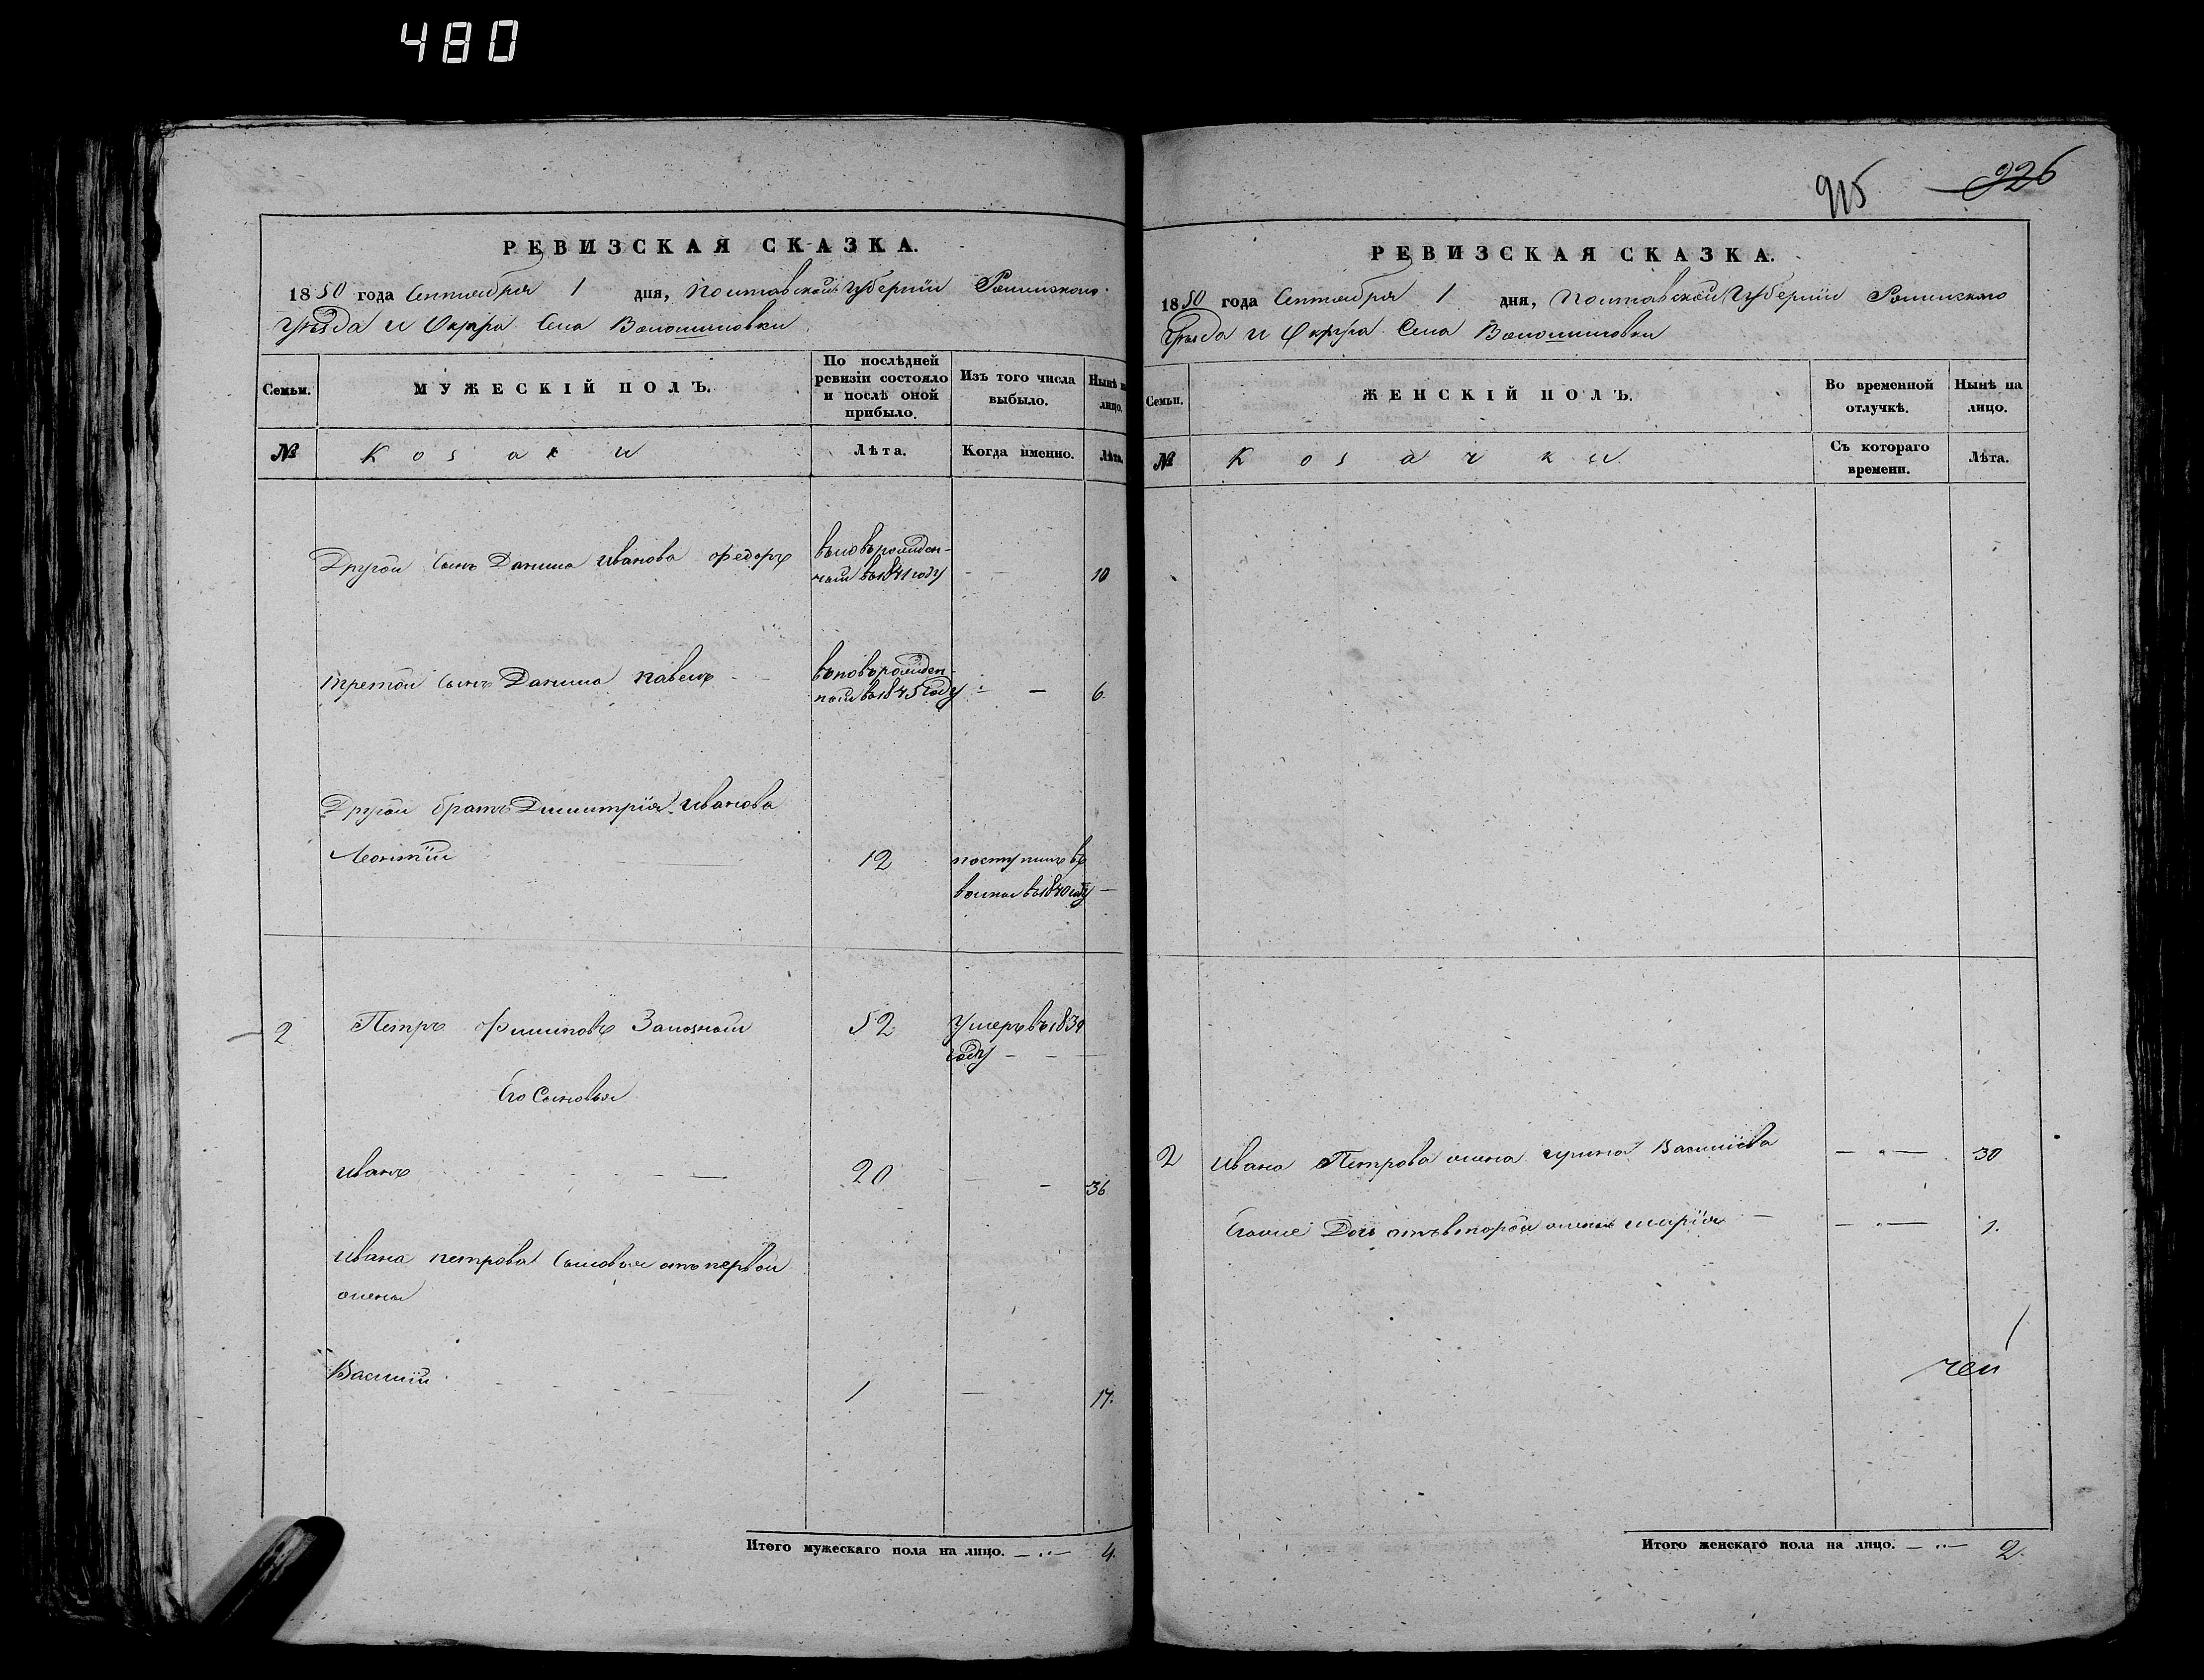 480
915 926
РЕВИЗСКАЯ СКАЗКА.
1850 года Сентября 1 дня, Полтавской Губерніи Роменского
Уѣзда и Округа Села Волошиновки
Семьи.
МУЖЕСКІЙ ПОЛЪ.
По послѣдней ревизіи состояло и послѣ оной прибыло.
Изъ того числа выбыло.
Нынѣ на лицо.
№
Козаки
Лѣта.
Когда именно.
Лѣта.
Другой сынъ Данила Иванова Федоръ
вновьрожден-
ный въ 1841 году
10
третой сынъ Данила Павелъ
вновьрожден-
ный въ 1845 году
6.
Другой братъ Димитрія Иванова
Леонтій 12 поступилъ въ
въ 1840 году
2 Петръ Филиповъ 52 Умеръ въ 183
году
Его Сыновья
Иванъ 20 36
Ивана Петрова сыновья отъ первой
жены
Василій 1 17.
Итого мужескаго пола на лицо. 4.
РЕВИЗСКАЯ СКАЗКА.
1850 года Сентября 1 дня, Полтавской Губерніи Роменского
Уѣзда и Округа Села Волошиновки
Семьи.
ЖЕНСКІЙ ПОЛЪ.
Во временной отлучкѣ.
Нынѣ на лицо.
№
Козачки
Съ котораго времени.
Лѣта.
2 Ивана Петрова жена Ирина Васильева 30
Егоже Дочь отъ второй жены Марія 1.
чей
Итого женскаго пола на лицо. 2.